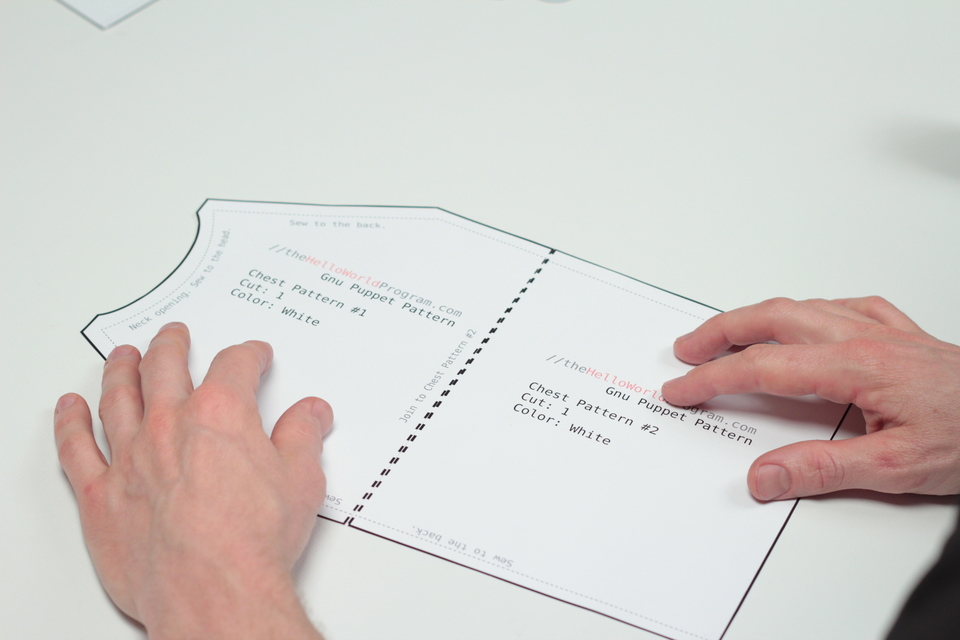 Sew to the back.
Neck opening. Sew to the head.
//theHelloWorldProgram.com
Gnu Puppet Pattern
Chest Pattern #1
Cut: 1
Color: White
Join to Chest Pattern #2
Sew
//theHelloWorldProgram.com
Gnu Puppet Pattern
Chest Pattern #2
Cut: 1
Color: White
Sew to the back.